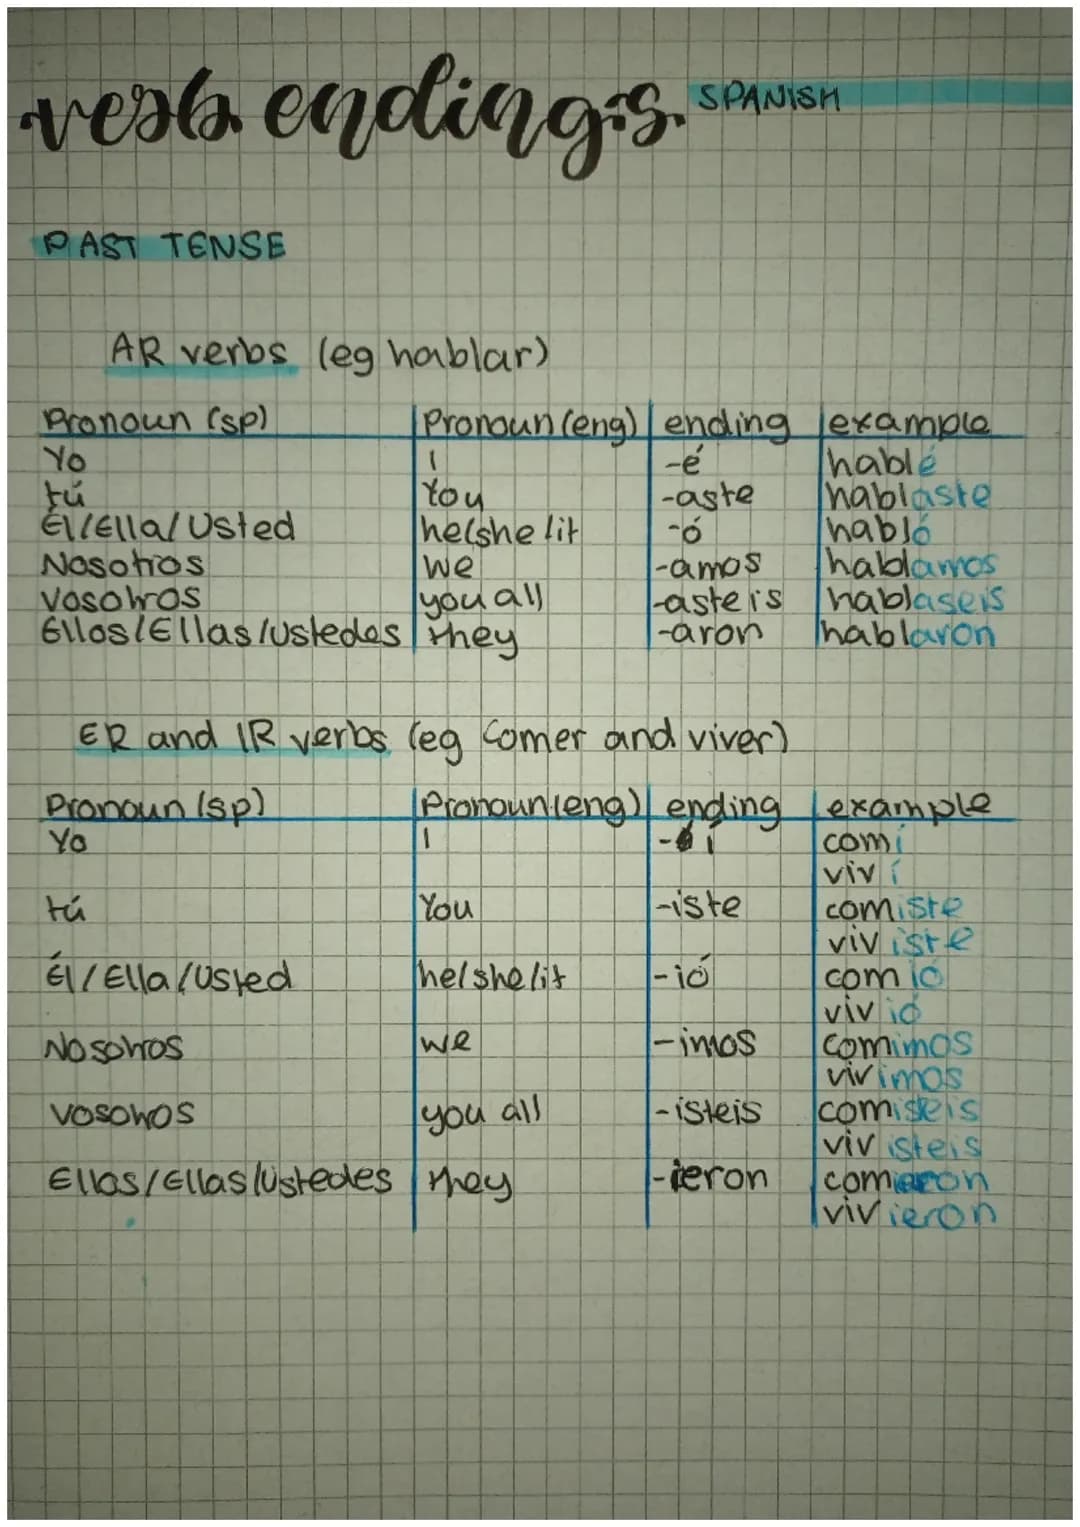 verb endings. SPANISH
PAST TENSE
AR verbs (eg hablar)
Pronoun (sp) Pronoun (eng) ending example
Yo I -é hablé
tú You -aste hablaste
Él/Ella/Usted he/she/it -ó habló
Nosotros we -amos hablamos
vosotros you all -asteis hablaseis
Ellos/Ellas/ustedes they -aron hablaron
ER and IR verbs (eg comer and viver)
Pronoun (sp) Pronoun (eng) ending example
Yo I -í comí
viví
tú You -iste comiste
viviste
Él/Ella/Usted he/she/it -ió comió
vivió
Nosotros we -imos comimos
vivimos
vosotros you all -isteis comiseis
vivisteis
Ellos/Ellas/ustedes they -ieron comieron
vivieron